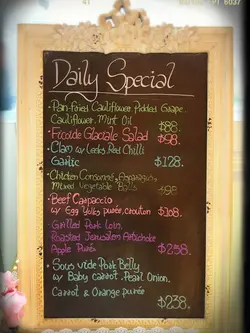 Daily Special
• Pan-fried Cauliflower, Pickled Grape
Cauliflower, Mint Oil $88.
• Ficoide Glaciale Salad $98.
• Clam w/ Leeks, Red Chilli
Garlic $128.
• Chicken Consommé, Asparagus,
Mixed Vegetable Balls $98
• Beef Carpaccio
w/ Egg Yolks purée, crouton $108.
• Grilled Pork Loin,
Roasted Jerusalem Artichoke
Apple Purée $258.
• Sous vide Pork Belly
w/ Baby carrot, Pearl Onion,
Carrot & Orange purée
$238.